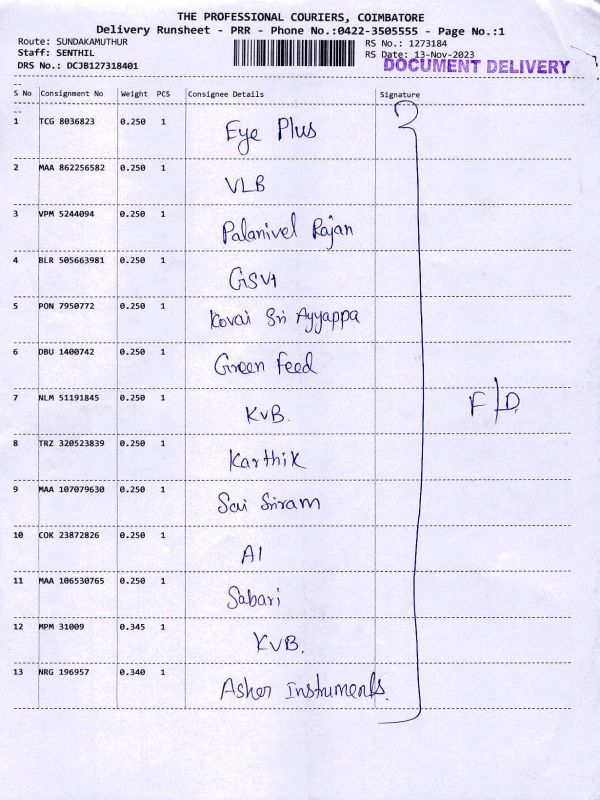 THE PROFESSIONAL COURIERS, COIMBATORE
Delivery Runsheet - PRR - Phone No.:0422-3505555 - Page No.:1
Route: SUNDAKAMUTHUR RS No.: 1273184
Staff: SENTHIL RS Date: 13-Nov-2023
DRS No.: DCJB127318401 DOCUMENT DELIVERY
S No Consignment No Weight PCS Consignee Details Signature
1 TCG 8036823 0.250 1 Eye Plus
2 MAA 862256582 0.250 1 VLB
3 VPM 5244094 0.250 1 Palanivel Rajan
4 BLR 505663981 0.250 1
5 PON 7950772 0.250 1 Kovai Sri Ayyappa
6 DBU 1400742 0.250 1 Green Feed
7 NLM 51191845 0.250 1 KVB. F/D
8 TRZ 320523839 0.250 1 Karthik
9 MAA 107079630 0.250 1 Sai Sriram
10 COK 23872826 0.250 1 A1
11 MAA 106530765 0.250 1 Sabari
12 MPM 31009 0.345 1 KVB.
13 NRG 196957 0.340 1 Asher Instruments.